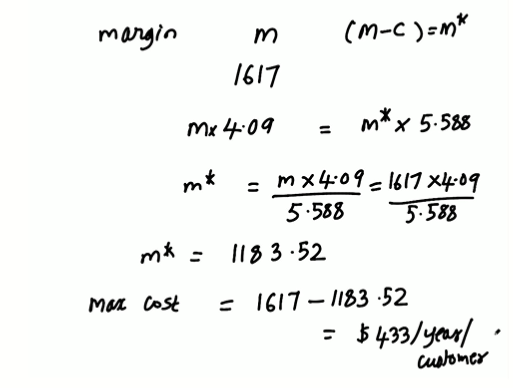 margin m (m-c)=m*
1617
mx 4.09 = m* x 5.588
m* = m x 4.09 / 5.588 = 1617 x 4.09 / 5.588
m* = 1183.52
max cost = 1617 - 1183.52
= $433/year/
customer